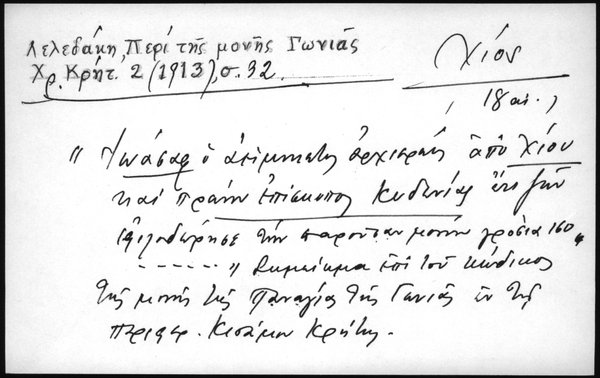 Λελεδάκη, Περί τῆς μονῆς Γωνιᾶς
Χρ. Κρήτ. 2 (1913), σ. 92.
Χίος
18 αι.
"Ἰωάσαφ ὁ ἀείμνηστος ἀρχιερεύς ἀπό Χίου
καί πρώην ἐπίσκοπος Κυδωνίας ἔτι ζῶν
ἐφιλοδώρησε τήν παροῦσαν μονήν γρόσια 150
------" Σημείωμα ἐπί τοῦ κώδικος
τῆς μονῆς τῆς Παναγίας τῆς Γωνιᾶς ἐν τῇ
περιφερ. Κισάμου Κρήτης.